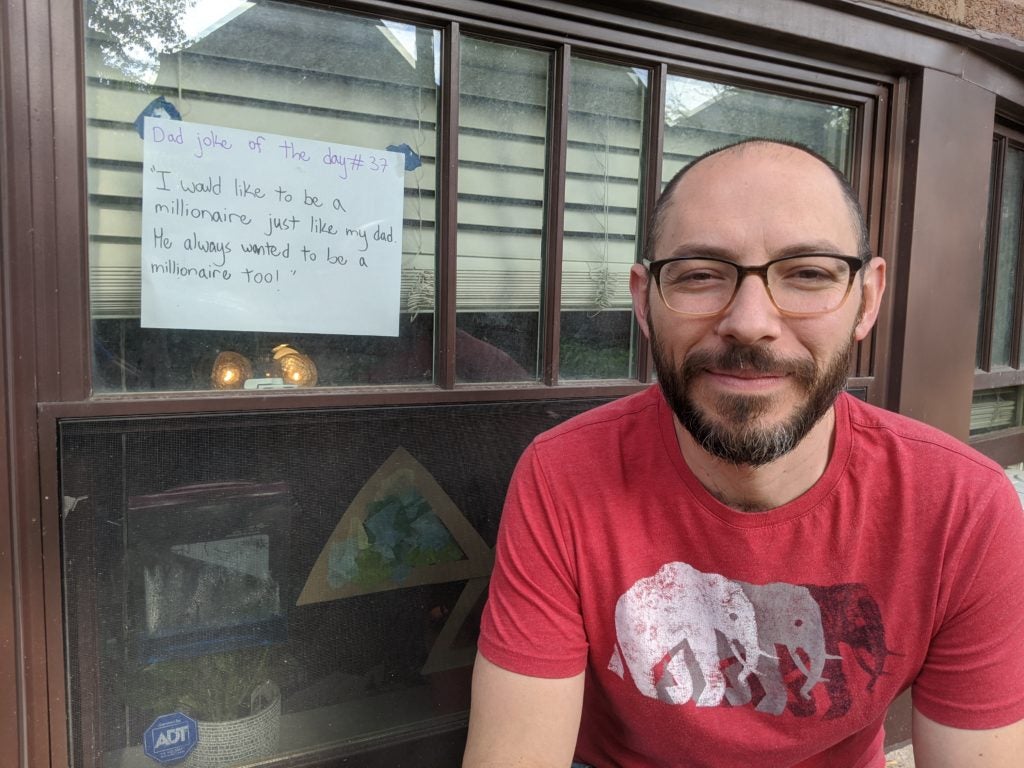 Dad joke of the day # 37
"I would like to be a
millionaire just like my dad.
He always wanted to be a
millionaire too!"
ADT